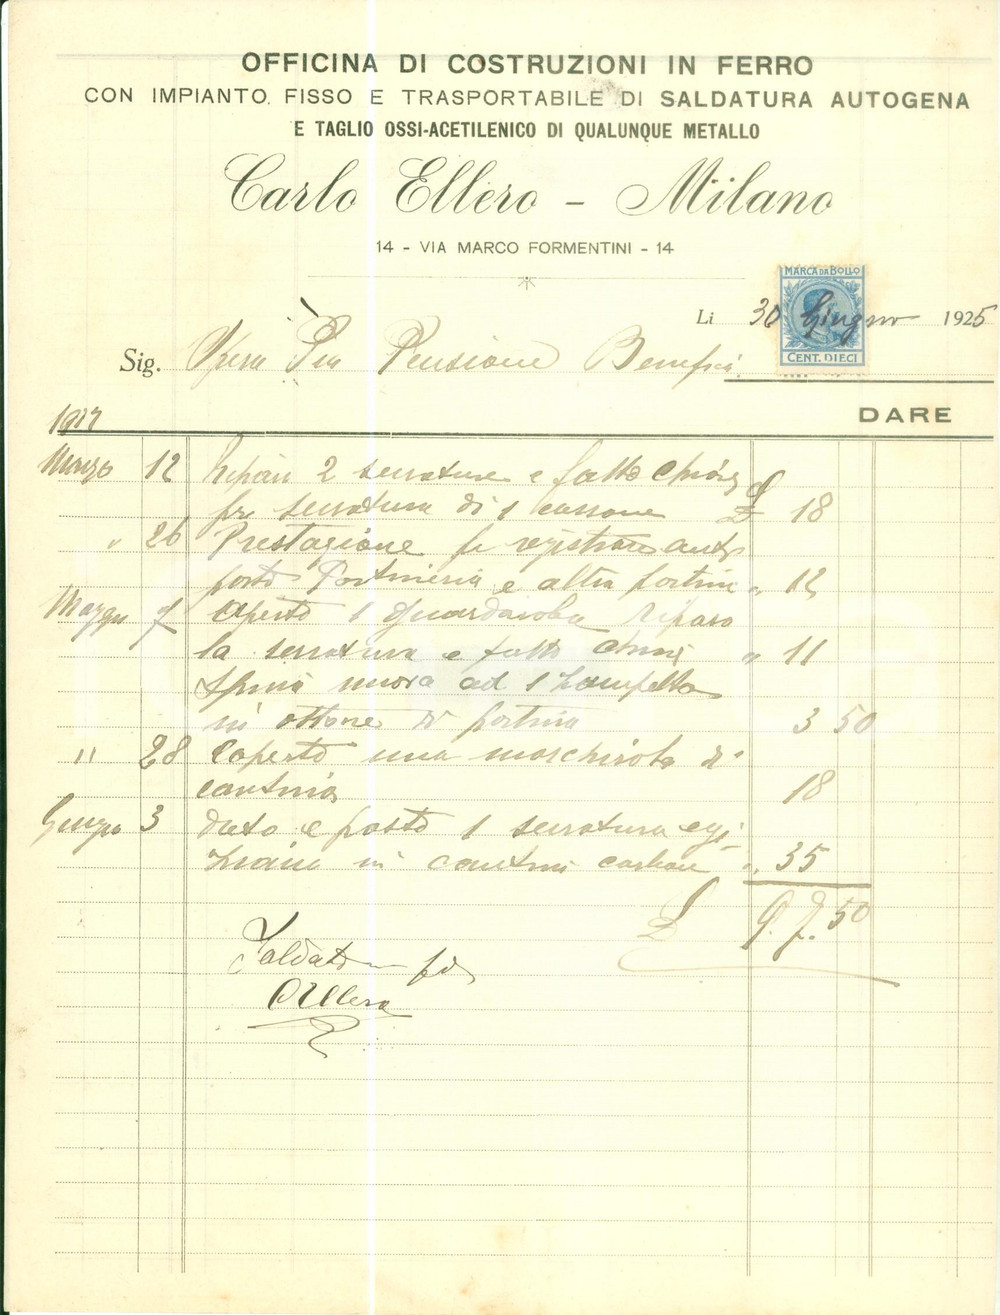 OFFICINA DI COSTRUZIONI IN FERRO
CON IMPIANTO FISSO E TRASPORTABILE DI SALDATURA AUTOGENA
E TAGLIO OSSI-ACETILENICO DI QUALUNQUE METALLO
Carlo Ellero - Milano
14 - VIA MARCO FORMENTINI - 14
MARCA DA BOLLO
CENT. DIECI
Li 30 Giugno 1925
Sig. Opera Pia Pensione Benefica
DARE
Marzo 12 2 serrature e fatto
serratura di 1 cassone £ 18
" 26 Prestazione
posto Portineria e altra " 12
Maggio Aperto 1 Guardaroba Riparo
la serratura e fatto chiavi " 11
nuova ad 1
in ottone di 3 50
" 28 Coperto una di
cantina 18
Giugno 3 dato e posto 1 serratura
in cantina " 35
£ 97.50
Saldato
CEllero